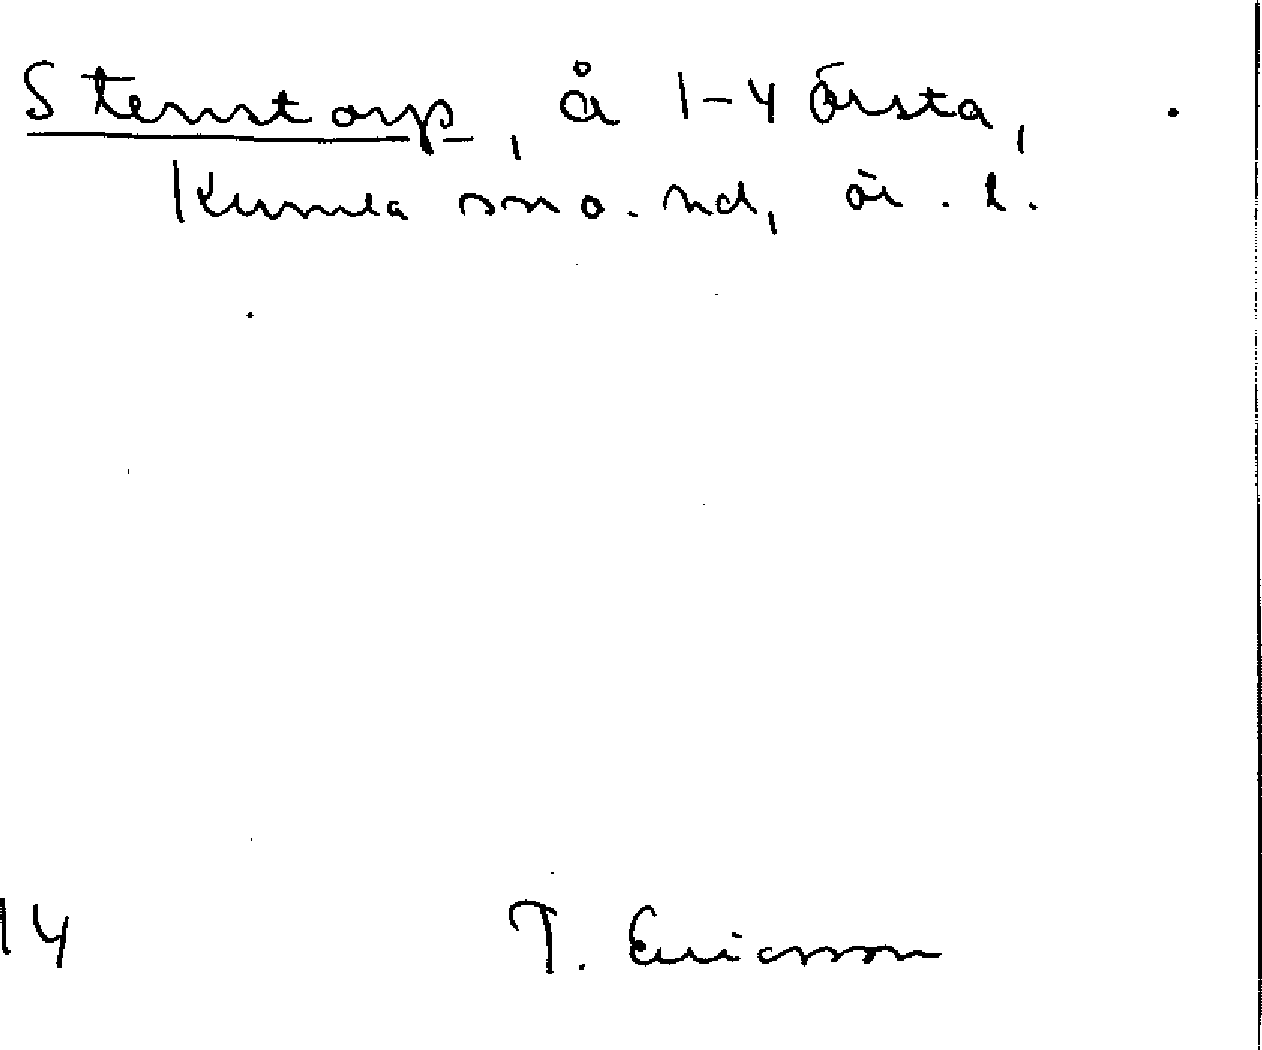 Stenstorp, å 1-4 Örsta,
Kumla sn o. hd, ör. l.
14
T. Ericsson